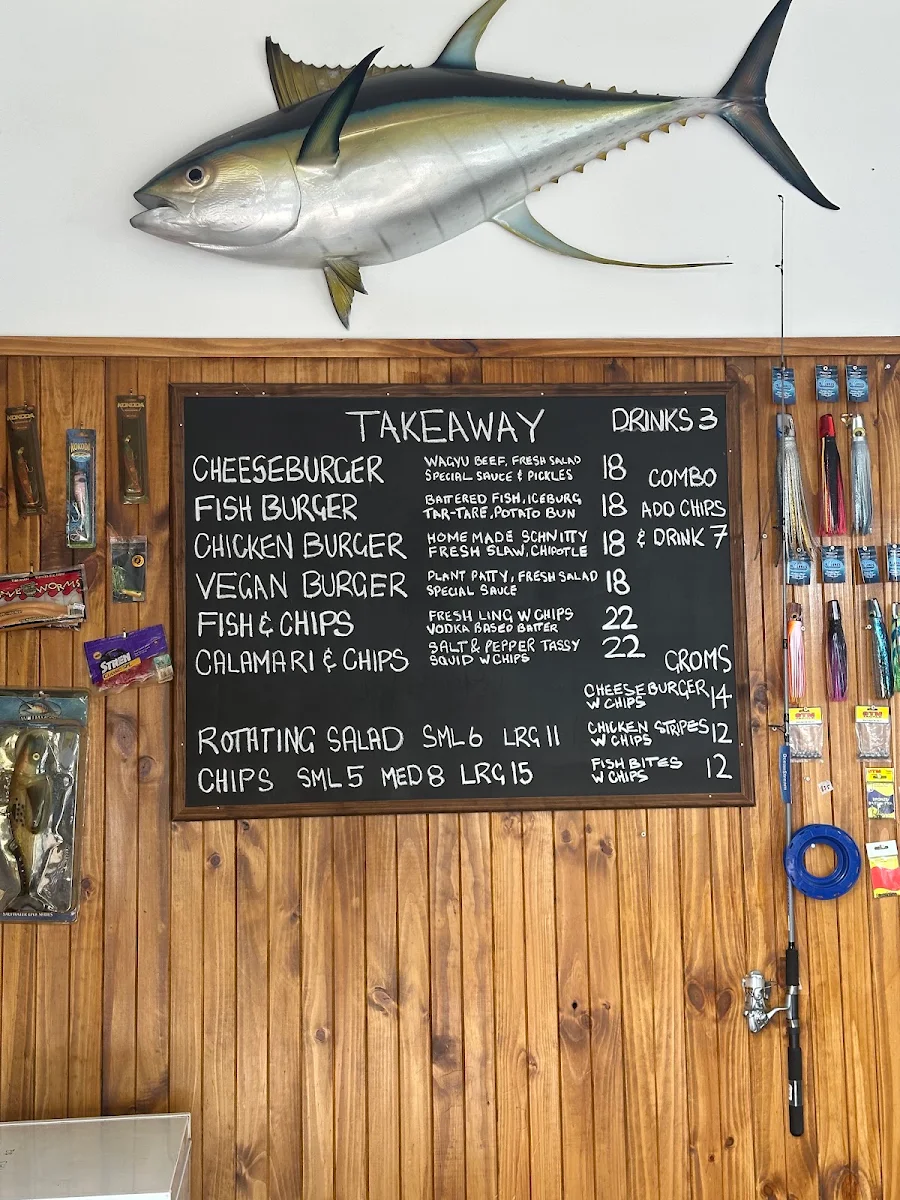 TAKEAWAY
DRINKS 3
CHEESEBURGER WAGYU BEEF, FRESH SALAD 18
SPECIAL SAUCE & PICKLES
COMBO
FISH BURGER BATTERED FISH, ICEBURG 18
TAR-TARE, POTATO BUN
ADD CHIPS
CHICKEN BURGER HOME MADE SCHNITTY 18
FRESH SLAW, CHIPOTLE
& DRINK 7
VEGAN BURGER PLANT PATTY, FRESH SALAD 18
SPECIAL SAUCE
FISH & CHIPS FRESH LING W CHIPS 22
VODKA BASED BATTER
CALAMARI & CHIPS SALT & PEPPER TASSY 22
SQUID W CHIPS
GROMS
CHEESEBURGER 14
W CHIPS
ROTATING SALAD SML 6 LRG 11
CHICKEN STRIPES 12
W CHIPS
CHIPS SML 5 MED 8 LRG 15
FISH BITES 12
W CHIPS
KOKODA
KOKODA
KOKODA
WORMS
STREN